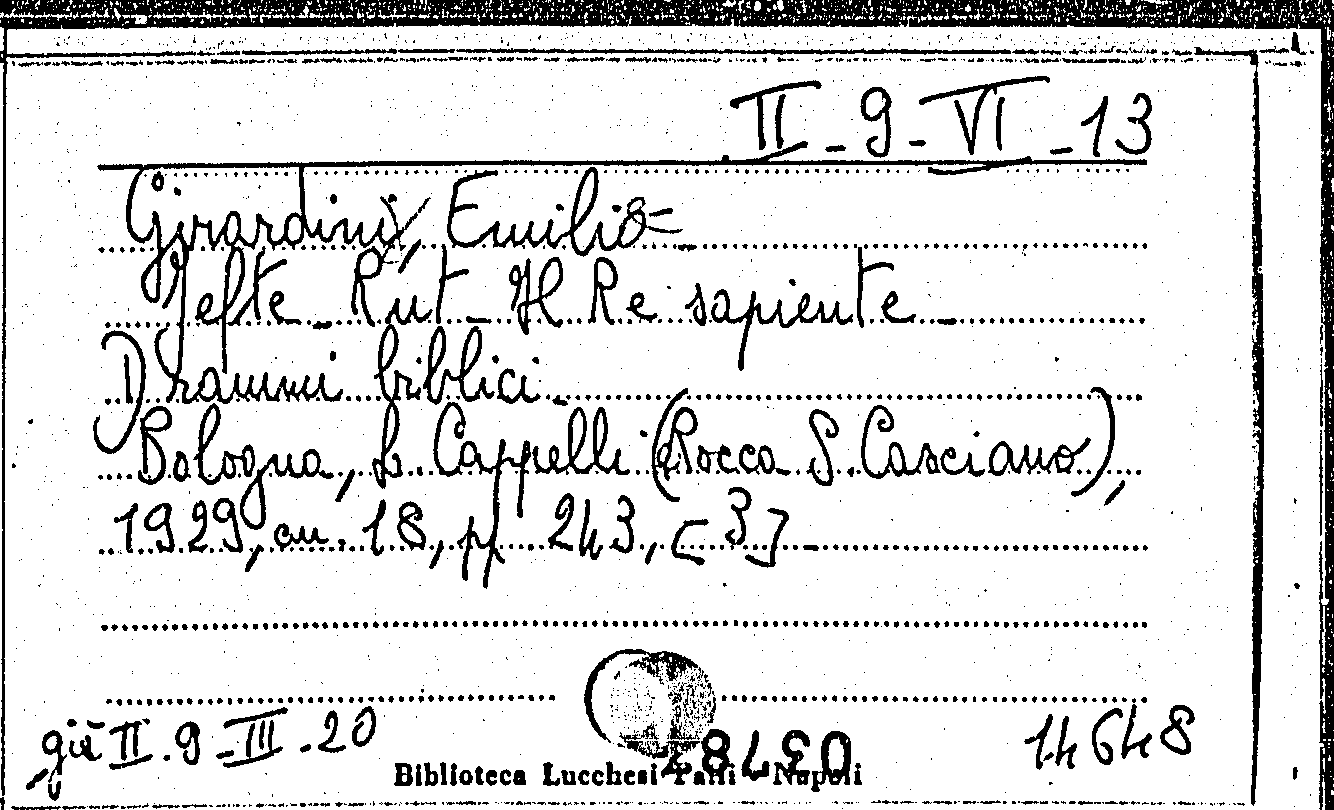 II - 9 - VI - 13
Girardini, Emilio -
Jefte - Rut - Il Re sapiente -
Drammi biblici -
Bologna, L. Cappelli (Rocca S. Casciano),
1929, cm. 18, pp 243, [3] -
già II . 9 - III . 20
14648
03787
Biblioteca Lucchesi Palli - Napoli